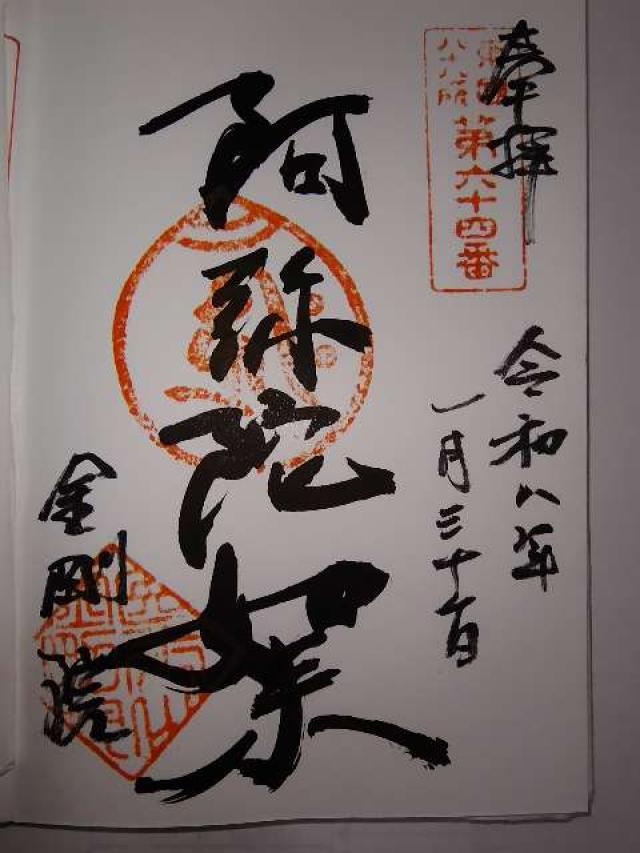 奉拝
八十八所
第六十四番
令和八年
一月三十一日
阿弥陀如来
金剛院